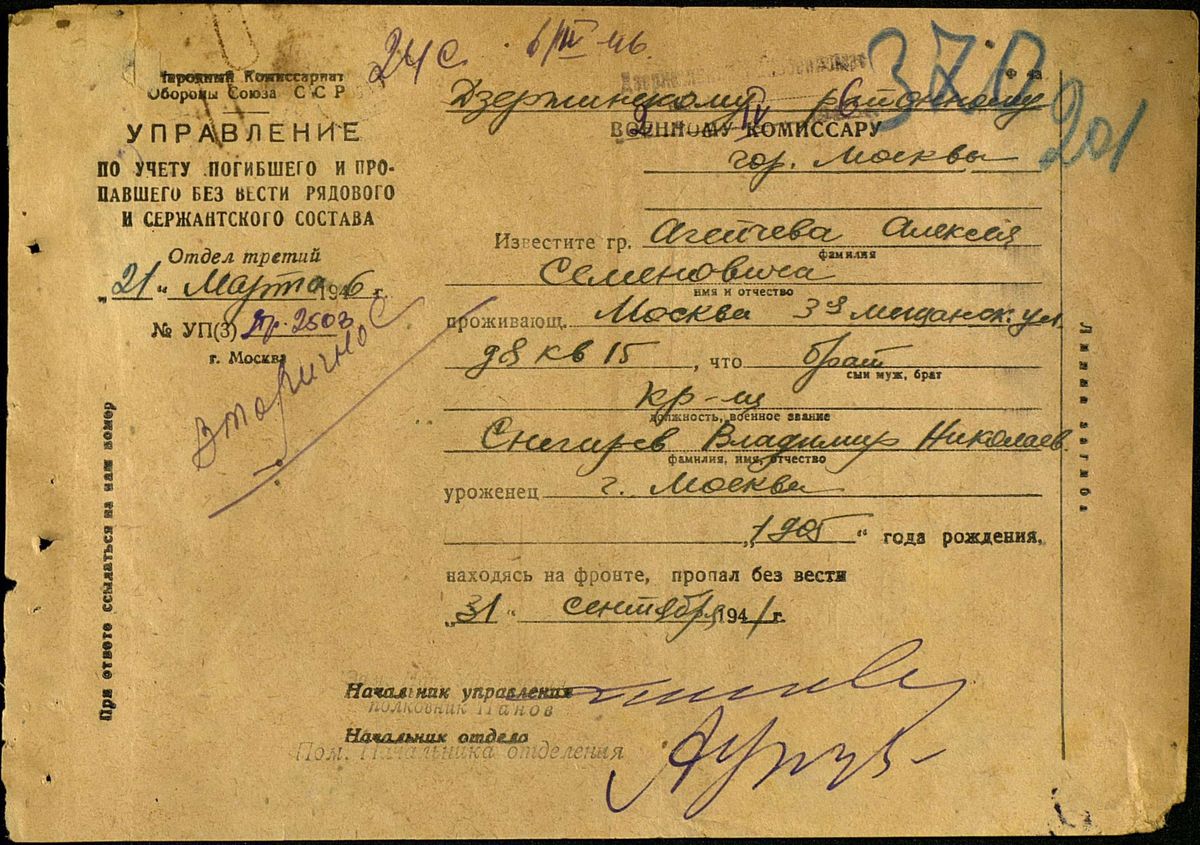 24 с. 6/III 46.
370
201
Народный Комиссариат
Обороны Союза ССР
УПРАВЛЕНИЕ
ПО УЧЕТУ ПОГИБШЕГО И ПРО-
ПАВШЕГО БЕЗ ВЕСТИ РЯДОВОГО
И СЕРЖАНТСКОГО СОСТАВА
Отдел третий
„21" Марта 1946 г.
№ УП(3) 2503
г. Москва
Вторично
При ответе ссылаться на наш номер
Ф 43
Дзержинскому районному
ВОЕННОМУ КОМИССАРУ
гор. Москвы
Известите гр. Агейчева Алексея
фамилия
Семеновича
имя и отчество
проживающ. Москва 3я мещанск. ул.
д 8 кв 15, что брат
сын муж, брат
кр-ц
должность, военное звание
Снегирев Владимир Николаев.
фамилия, имя, отчество
уроженец г. Москва
„1905" года рождения,
находясь на фронте, пропал без вести
„31" сентября 1941 г.
Линия загиба
Начальник управления
полковник Панов
Начальник отдела
Пом. Начальника отделения